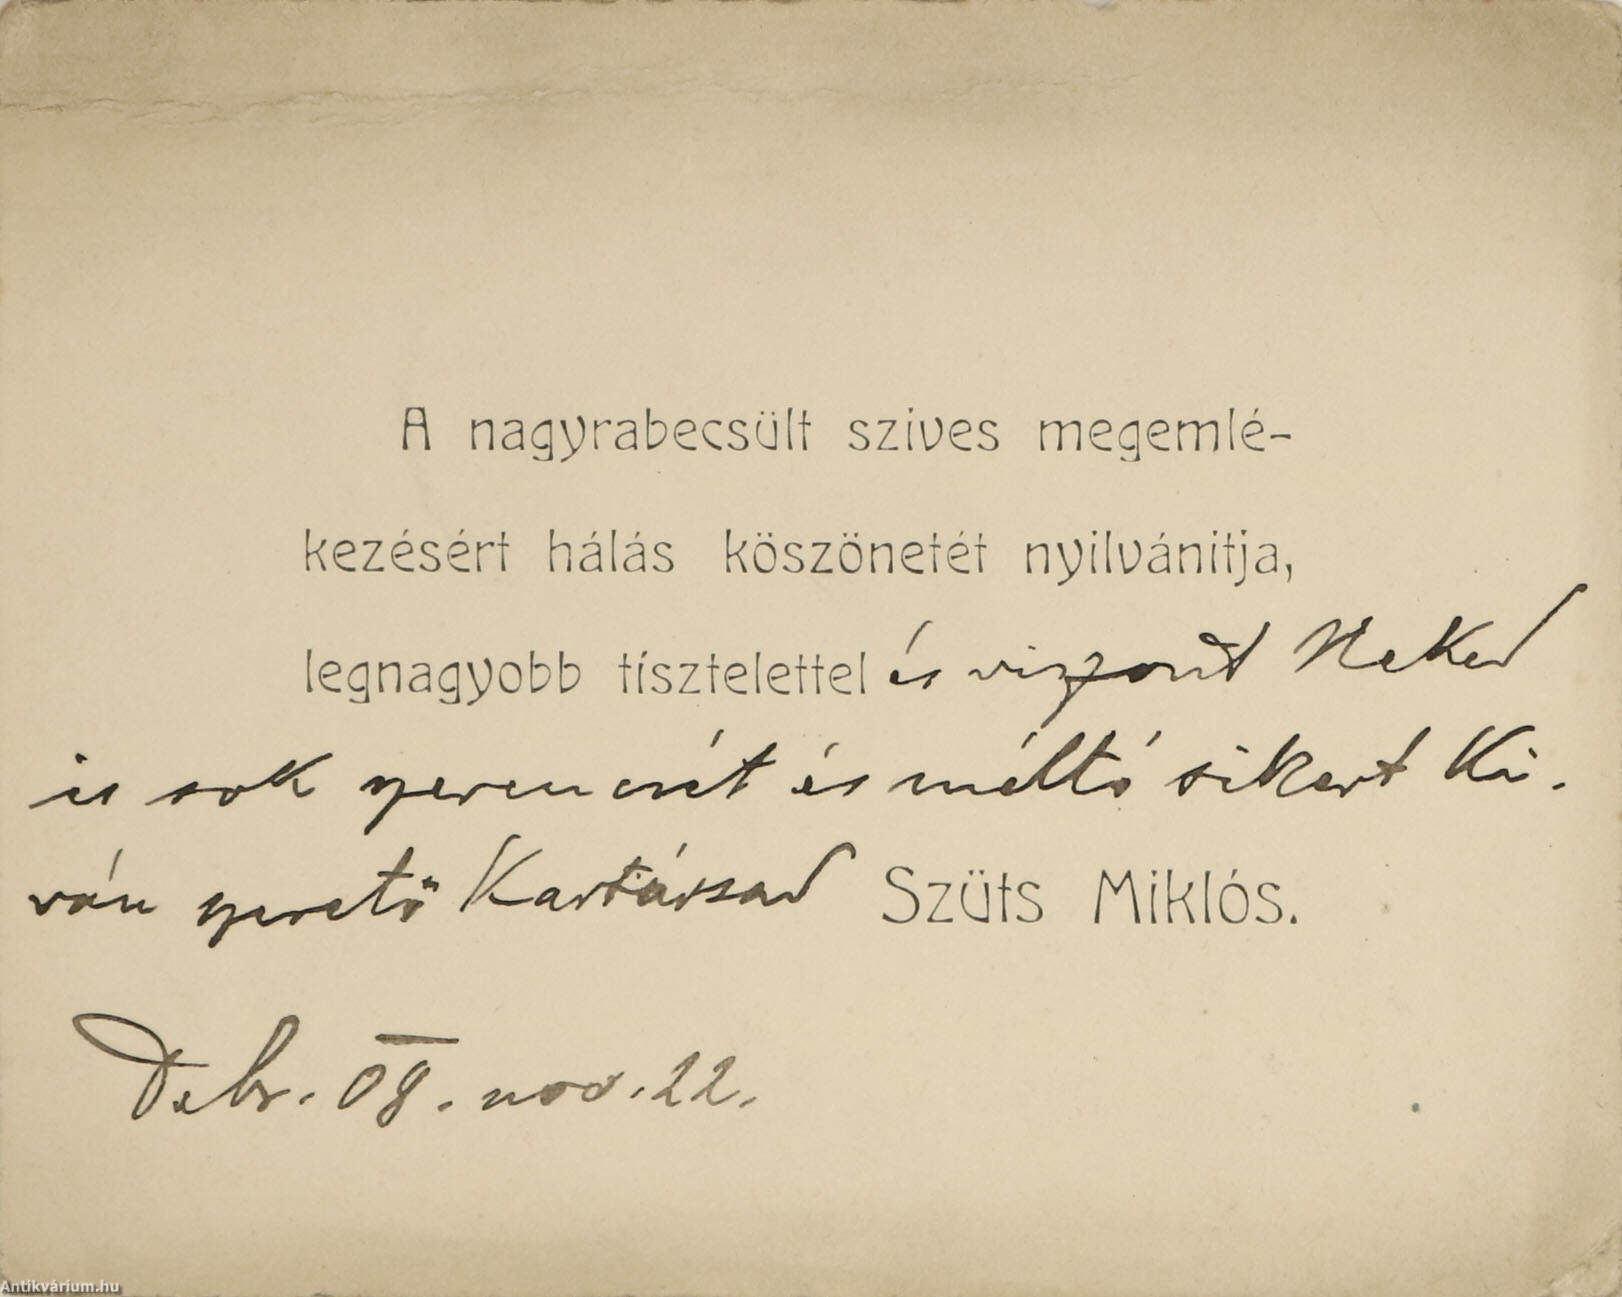 A nagyrabecsült szives megemlé-
kezésért hálás köszönetét nyilvánitja,
legnagyobb tisztelettel és viszont Neked
is sok szerencsét és méltó sikert Ki-
ván szerető Kartársad Szüts Miklós.
Debr. 08. nov. 22.
Antikvárium.hu